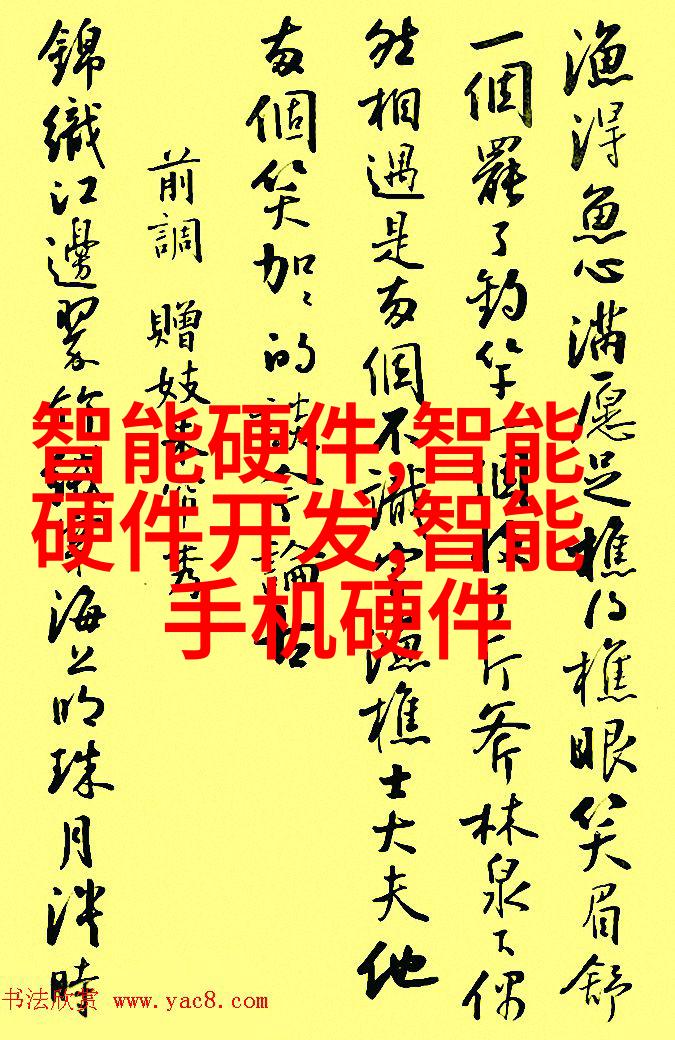 漁得魚心滿愿足樵得樵眼笑眉舒
一個罷了釣竿一個收了斤斧林泉下偶
然相遇是两個不識字漁樵士大夫他
两個笑加加的談今論古
前調 贈妓朱帘秀
錦織江邊翠竹絨穿海上明珠月淡時
智能硬件,智能
硬件开发,智能
手机硬件
书法欣赏 www.yac8.com